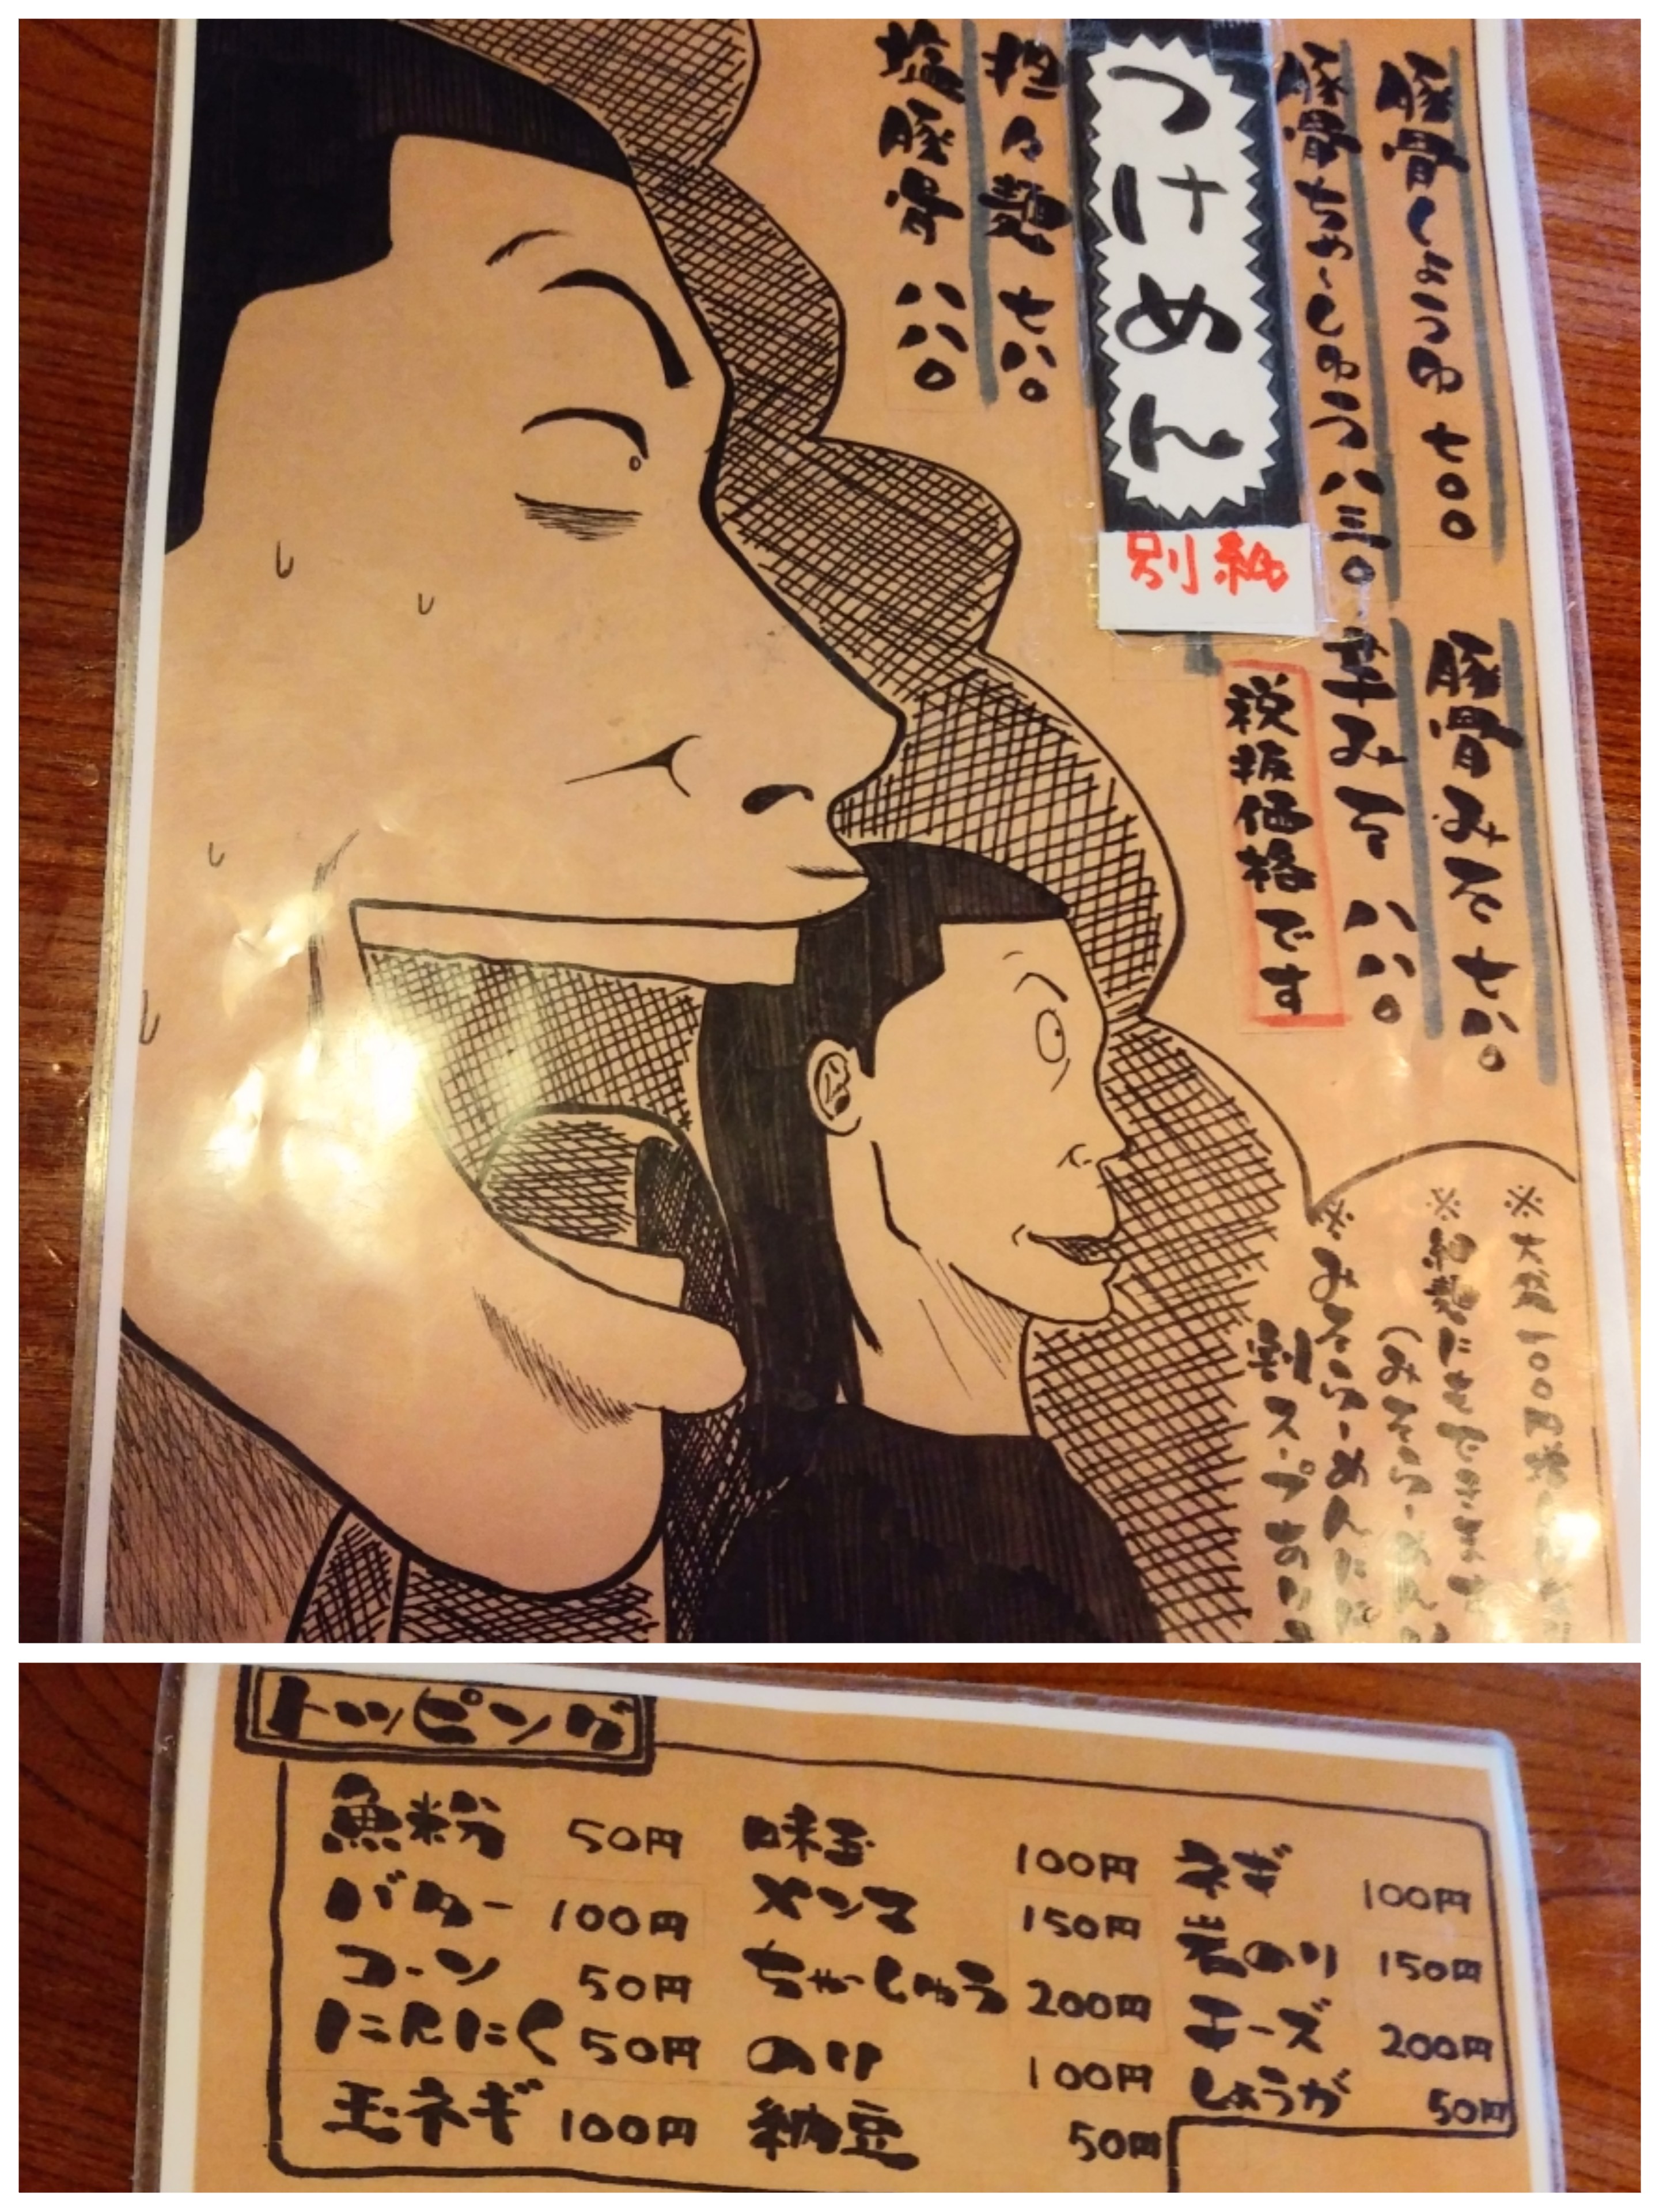 豚骨しょうゆ 七００
豚骨みそ 七八０
豚骨ちゃーしゅう 八三０
辛みそ 八八０
つけめん
別紙
税抜価格です
担々麺 七八０
塩豚骨 八八０
※大盛一００円増し
※細麺にもできます
（みそらーめん
※みそらーめんには
割スープあり
トッピング
魚粉 50円
バター 100円
コーン 50円
にんにく 50円
玉ネギ 100円
味玉 100円
メンマ 150円
ちゃーしゅう 200円
のり 100円
納豆 50円
ネギ 100円
岩のり 150円
チーズ 200円
しょうが 50円